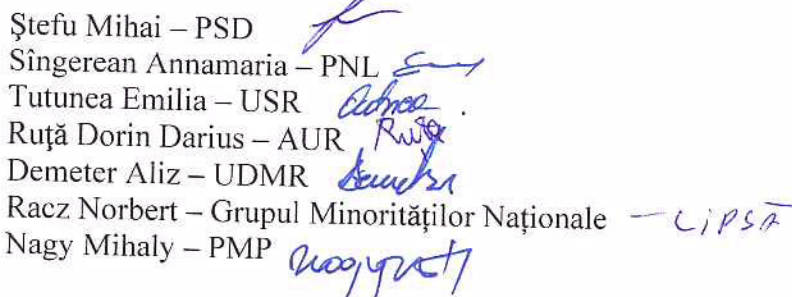 Ştefu Mihai – PSD
Sîngerean Annamaria – PNL
Tutunea Emilia – USR
Ruţă Dorin Darius – AUR Ruţă
Demeter Aliz – UDMR Demeter
Racz Norbert – Grupul Minorităților Naționale – LIPSĂ
Nagy Mihaly – PMP